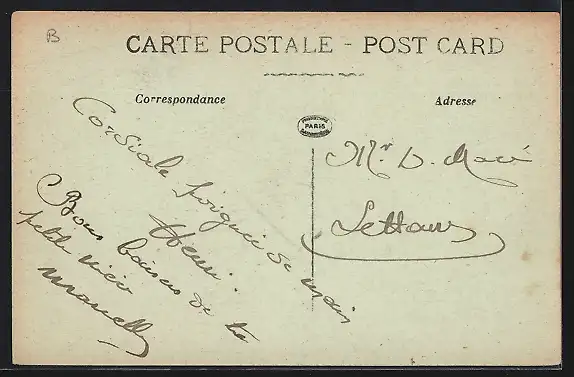 B
CARTE POSTALE - POST CARD
Correspondance
Adresse
PARIS
Cordiale poignée de main
Henri.
Bons baisers de ta
petite nièce
Marcelle
Mr D. Macé